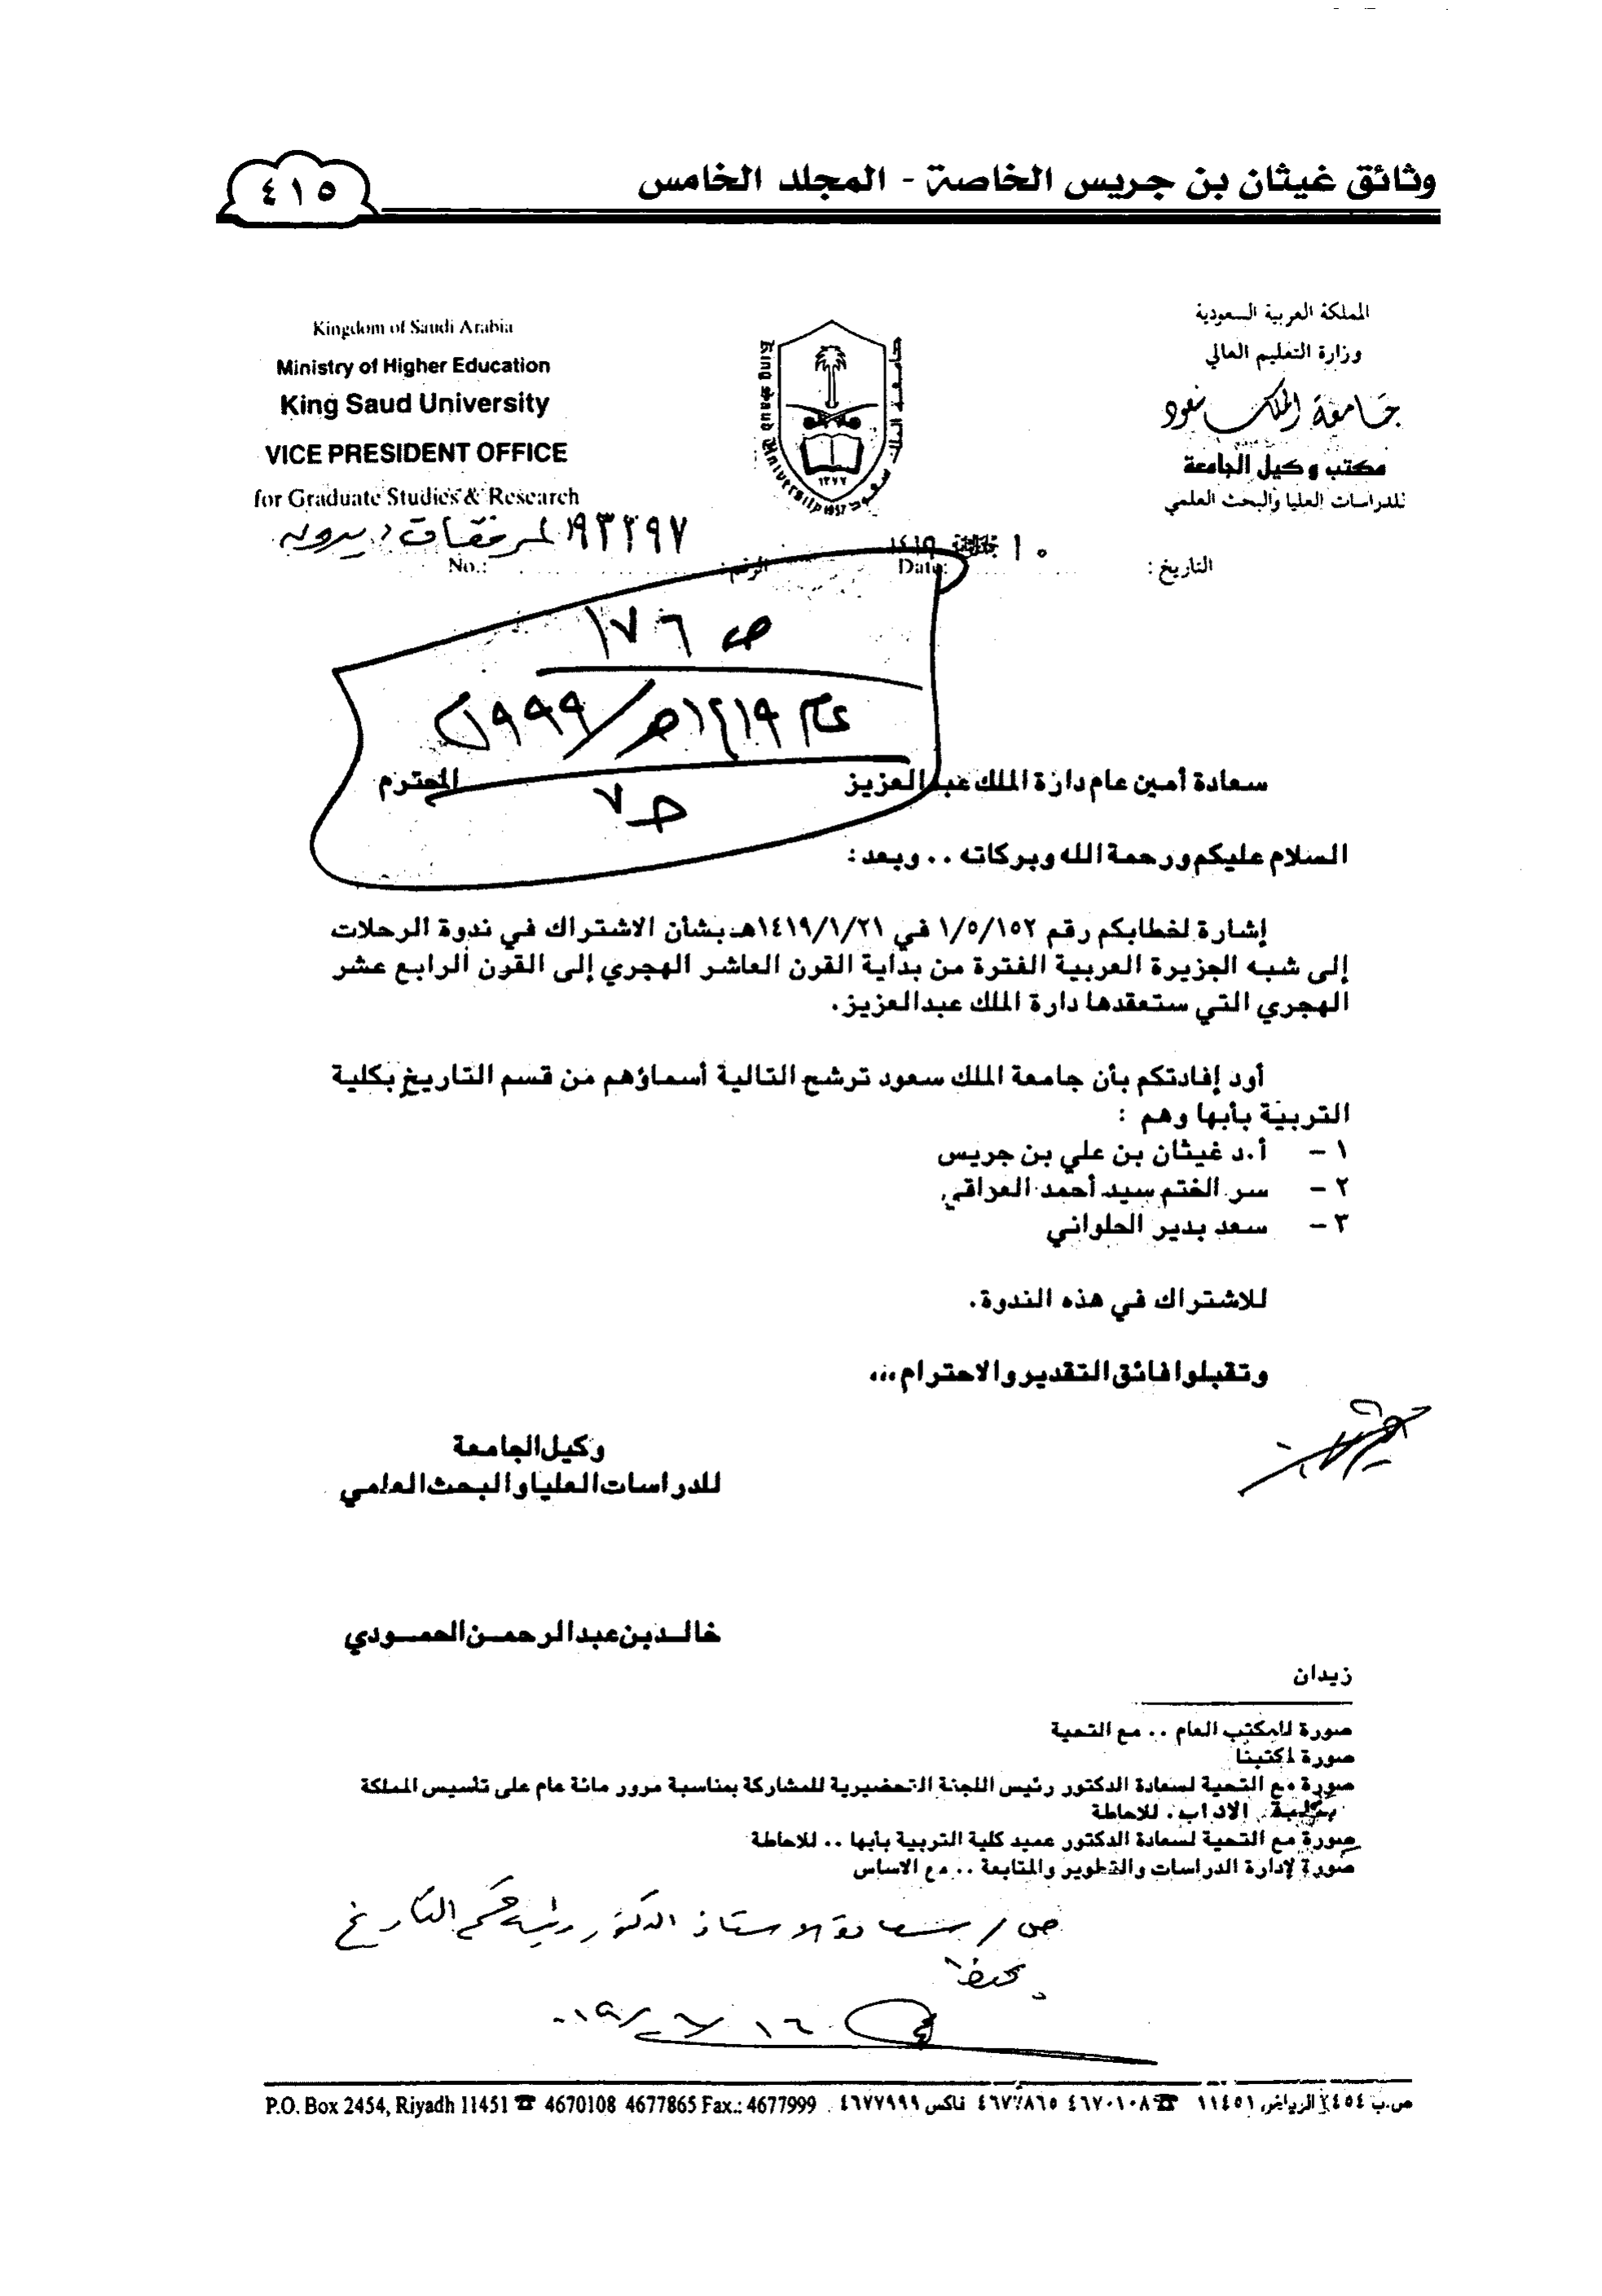 وثائق غيثان بن جريس الخاصة - المجلد الخامس
٤١٥
المملكة العربية السعودية
وزارة التعليم العالي
جامعة الملك سعود
مكتب وكيل الجامعة
للدراسات العليا والبحث العلمي
Kingdom of Saudi Arabia
Ministry of Higher Education
King Saud University
VICE PRESIDENT OFFICE
for Graduate Studies & Research
جامعة الملك سعود
١٣٧٧
King Saud University 1957
التاريخ :
Date:
الرقم:
No.:
ص ١٧٦
عام ١٤١٩هـ/ ١٩٩٩م
ج٧
سعادة أمين عام دارة الملك عبدالعزيز المحترم
السلام عليكم ورحمة الله وبركاته .. وبعد:
إشارة لخطابكم رقم ١/٥/١٥٢ في ١٤١٩/١/٢١هـ بشأن الاشتراك في ندوة الرحلات
إلى شبه الجزيرة العربية الفترة من بداية القرن العاشر الهجري إلى القرن الرابع عشر
الهجري التي ستعقدها دارة الملك عبدالعزيز.
أود إفادتكم بأن جامعة الملك سعود ترشح التالية أسماؤهم من قسم التاريخ بكلية
التربية بأبها وهم :
١ - أ.د غيثان بن علي بن جريس
٢ - سر الختم سيد أحمد العراقي
٣ - سعد بدير الحلواني
للاشتراك في هذه الندوة.
وتقبلوا فائق التقدير والاحترام ،،،
وكيل الجامعة
للدراسات العليا والبحث العلمي
خالد بن عبدالرحمن الحمودي
زيدان
صورة للمكتب العام .. مع التحية
صورة لمكتبنا
صورة مع التحية لسعادة الدكتور رئيس اللجنة التحضيرية للمشاركة بمناسبة مرور مائة عام على تأسيس المملكة
بكلية الاداب. للاحاطة
صورة مع التحية لسعادة الدكتور عميد كلية التربية بأبها .. للاحاطة
صورة لإدارة الدراسات والتطوير والمتابعة .. مع الاساس
ص / سعادة الاستاذ الدكتور رئيس قسم التاريخ
P.O. Box 2454, Riyadh 11451 ☎ 4670108 4677865 Fax.: 4677999
ص.ب ٢٤٥٤ الرياض ١١٤٥١ ☎ ٤٦٧٠١٠٨ ٤٦٧٧٨٦٥ فاكس ٤٦٧٧٩٩٩